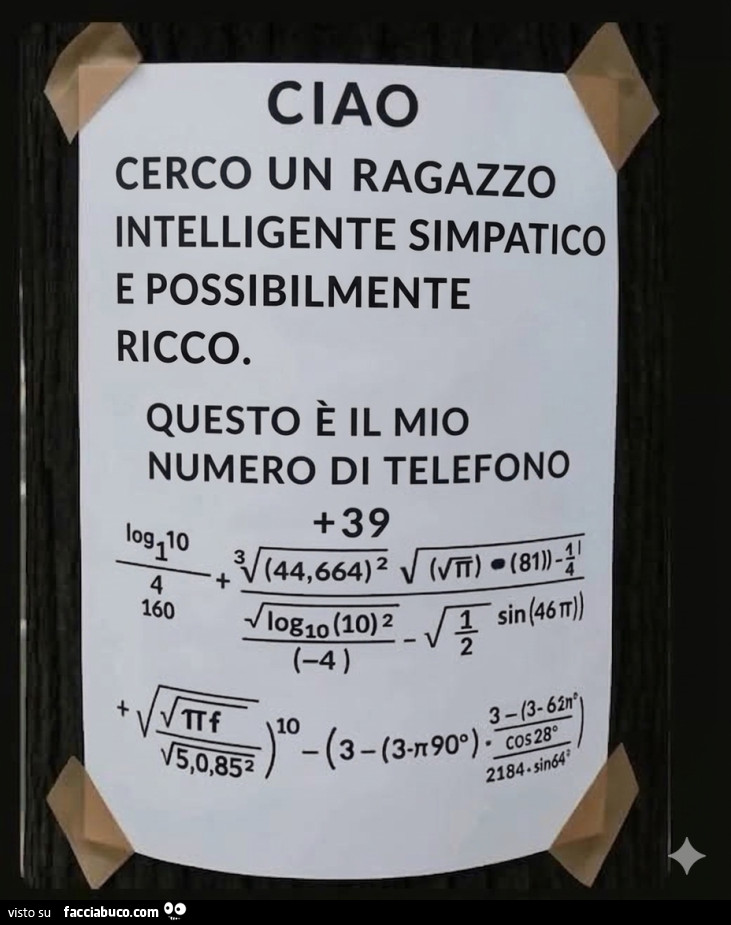 CIAO
CERCO UN RAGAZZO
INTELLIGENTE SIMPATICO
E POSSIBILMENTE
RICCO.
QUESTO È IL MIO
NUMERO DI TELEFONO
+39
log₁10 / 4 160 + ∛(44,664)² √(√π) • (81)) - 1/4 / √log₁₀(10)² / (-4) - √1/2 sin(46π))
+ √√πf / √5,0,85² )¹⁰ - (3 - (3-π90°) · 3 - (3- / cos28° / 2184 · sin64°
visto su facciabuco.com